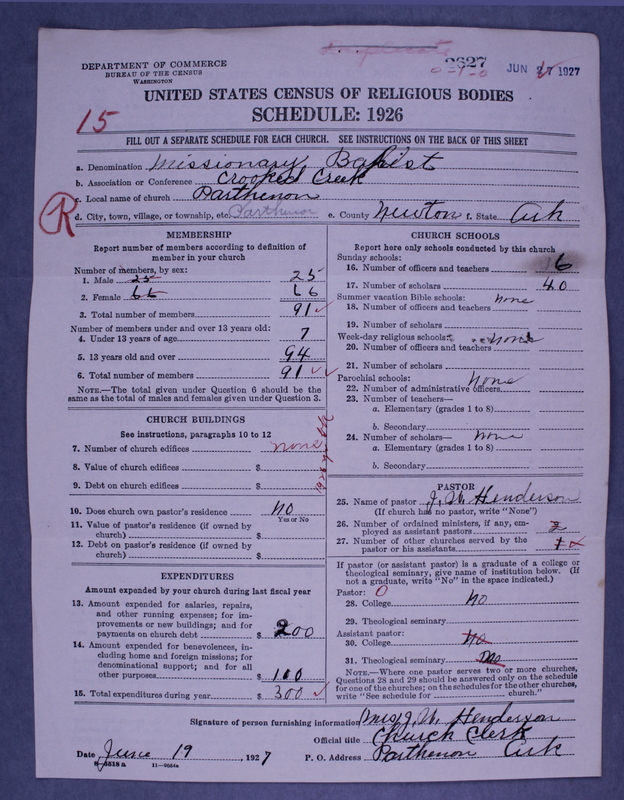 DEPARTMENT OF COMMERCE
BUREAU OF THE CENSUS
WASHINGTON
2627
0-1-0
JUN 27 1927
UNITED STATES CENSUS OF RELIGIOUS BODIES
SCHEDULE: 1926
15
FILL OUT A SEPARATE SCHEDULE FOR EACH CHURCH. SEE INSTRUCTIONS ON THE BACK OF THIS SHEET
a. Denomination Missionary Baptist
b. Association or Conference Crooked Creek
c. Local name of church Parthenon
R
d. City, town, village, or township, etc. Parthenon e. County Newton f. State Ark
MEMBERSHIP
Report number of members according to definition of
member in your church
Number of members, by sex:
1. Male 25 25
2. Female 66 66
3. Total number of members 91
Number of members under and over 13 years old:
4. Under 13 years of age 7
5. 13 years old and over 94
6. Total number of members 91
NOTE.—The total given under Question 6 should be the
same as the total of males and females given under Question 3.
CHURCH BUILDINGS
See instructions, paragraphs 10 to 12
7. Number of church edifices none
8. Value of church edifices $
9. Debt on church edifices $
10. Does church own pastor's residence? No
Yes or No
11. Value of pastor's residence (if owned by
church) $
12. Debt on pastor's residence (if owned by
church) $
EXPENDITURES
Amount expended by your church during last fiscal year
13. Amount expended for salaries, repairs,
and other running expenses; for im-
provements or new buildings; and for
payments on church debt $ 200
14. Amount expended for benevolences, in-
cluding home and foreign missions; for
denominational support; and for all
other purposes $ 100
15. Total expenditures during year $ 300
CHURCH SCHOOLS
Report here only schools conducted by this church
Sunday schools:
16. Number of officers and teachers 6
17. Number of scholars 40
Summer vacation Bible schools: none
18. Number of officers and teachers
19. Number of scholars
Week-day religious schools: none
20. Number of officers and teachers
21. Number of scholars
Parochial schools: none
22. Number of administrative officers
23. Number of teachers—
a. Elementary (grades 1 to 8)
b. Secondary
24. Number of scholars— none
a. Elementary (grades 1 to 8)
b. Secondary
PASTOR
25. Name of pastor J. W. Henderson
(If church has no pastor, write "None")
26. Number of ordained ministers, if any, em-
ployed as assistant pastors 2
27. Number of other churches served by the
pastor or his assistants 1
If pastor (or assistant pastor) is a graduate of a college or
theological seminary, give name of institution below. (If
not a graduate, write "No" in the space indicated.)
Pastor: 0
28. College No
29. Theological seminary
Assistant pastor:
30. College No
31. Theological seminary No
NOTE.—Where one pastor serves two or more churches,
Questions 28 and 29 should be answered only on the schedule
for one of the churches; on the schedules for the other churches,
write "See schedule for church."
Signature of person furnishing information Mrs J. W. Henderson
Official title Church Clerk
Date June 19, 1927 P. O. Address Parthenon Ark
8-5518a 11-9554a